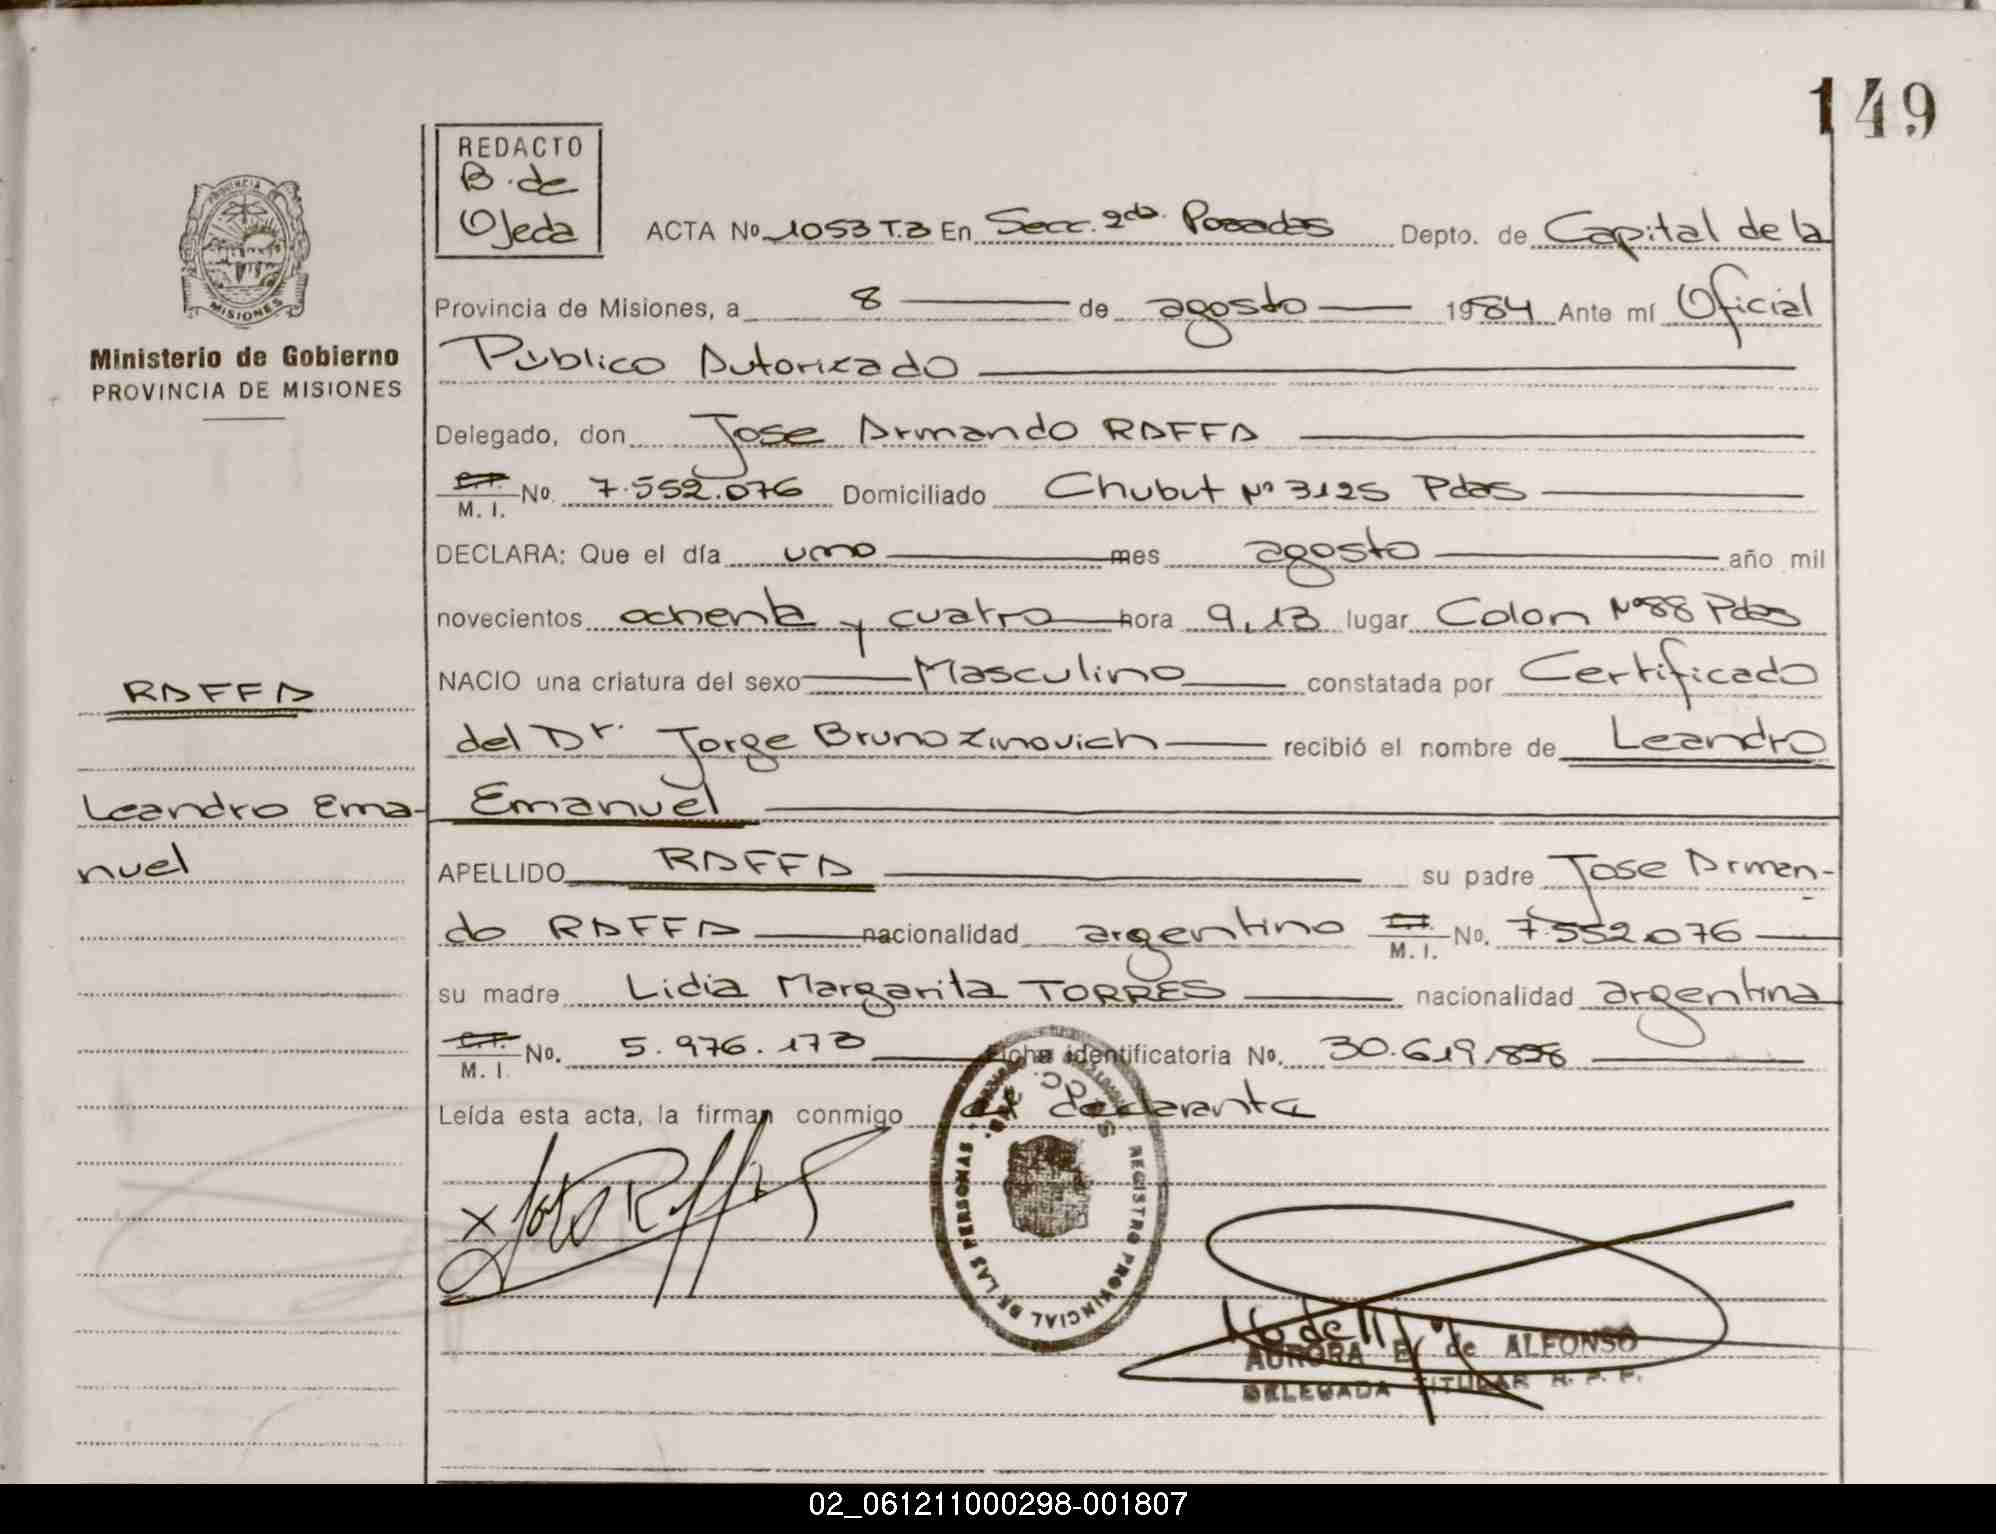 149
REDACTO
B. de
Ojeda
PROVINCIA
MISIONES
Ministerio de Gobierno
PROVINCIA DE MISIONES
ACTA Nº 1053 T.3 En Secc. 2da. Posadas Depto. de Capital de la
Provincia de Misiones, a 8 de agosto 1984 Ante mí Oficial
Público Autorizado
Delegado, don Jose Armando RAFFA
C.I. M. I. No. 7.552.076 Domiciliado Chubut Nº 3125 Pdas
DECLARA: Que el día uno mes agosto año mil
novecientos ochenta y cuatro hora 9,13 lugar Colon Nº88 Pdas
NACIO una criatura del sexo Masculino constatada por Certificado
del Dr. Jorge Bruno Zinovich recibió el nombre de Leandro
Emanuel
RAFFA
Leandro Ema-
nuel
APELLIDO RAFFA su padre Jose Arman-
do RAFFA nacionalidad argentino C.I. M. I. No. 7.552.076
su madre Lidia Margarita TORRES nacionalidad argentina
C.I. M. I. No. 5.976.173 Ficha identificatoria No. 30.619.838
Leída esta acta, la firman conmigo el declarante
REGISTRO PROVINCIAL DE LAS PERSONAS
SECC.
X
AURORA E. de ALFONSO
DELEGADA TITULAR R. P. P.
02_061211000298-001807